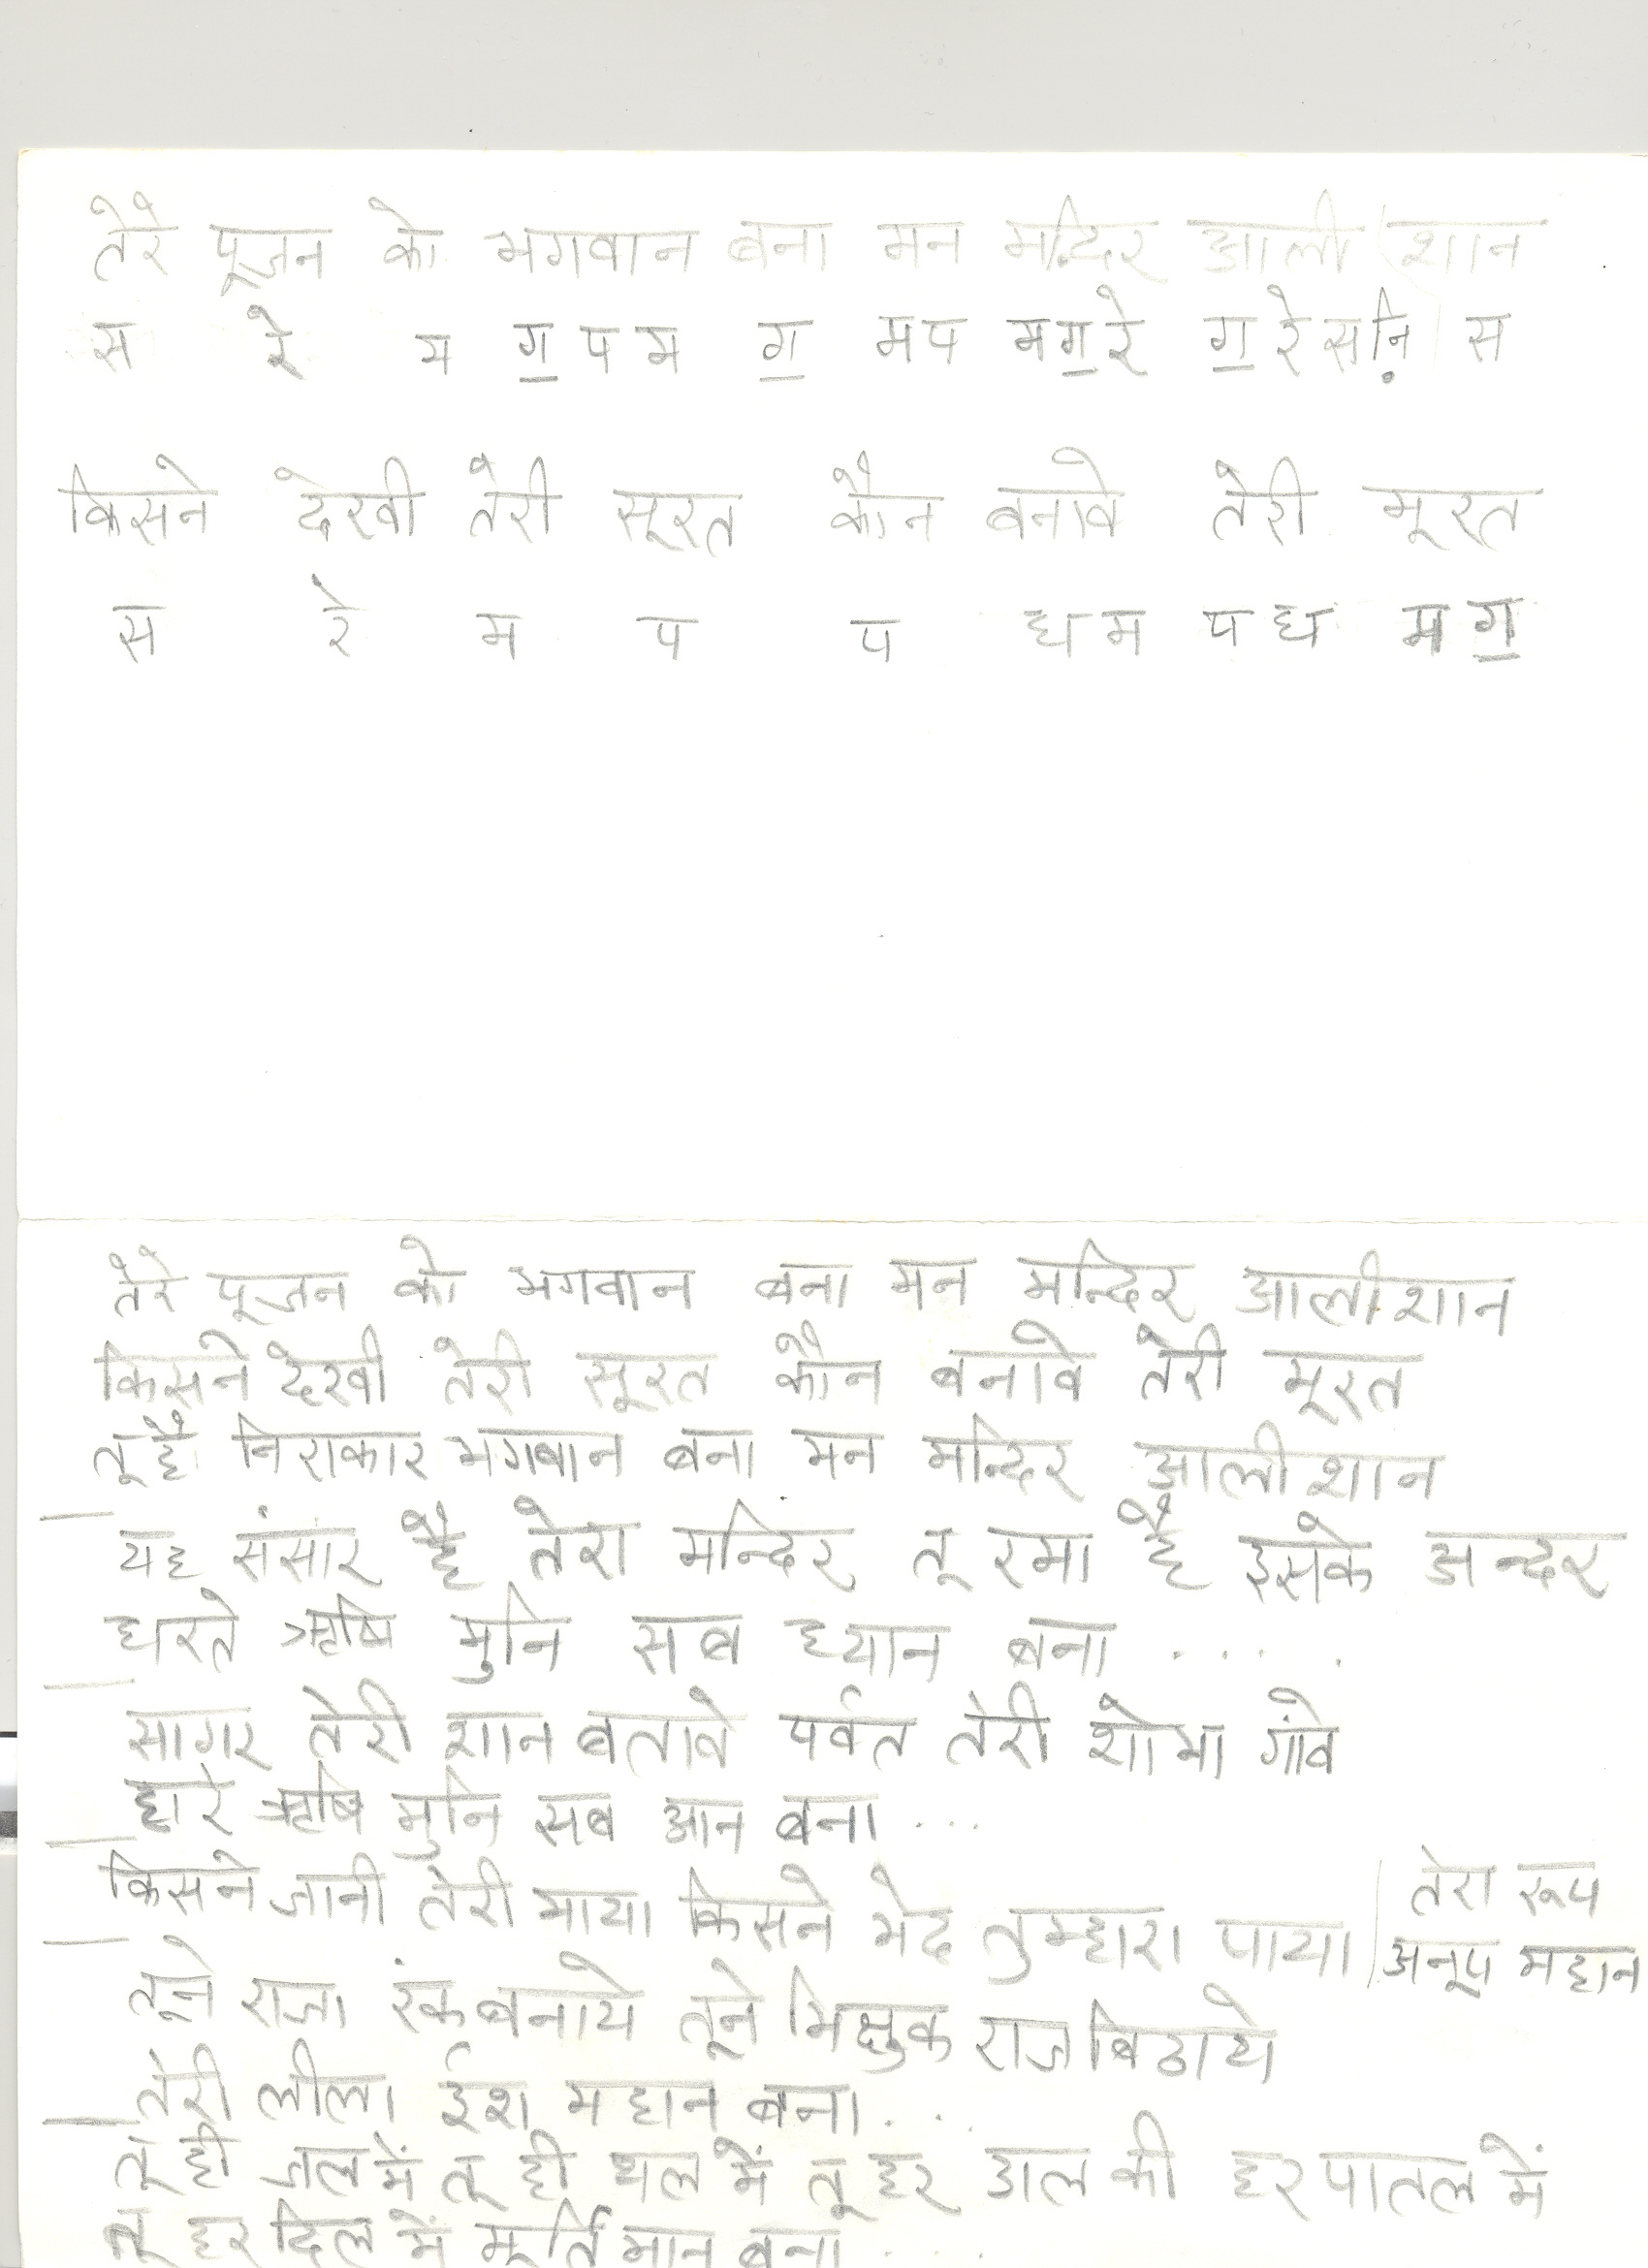 तेरे पूजन को भगवान बना मन मन्दिर आली शान
स रे म ग॒ प म ग॒ मप मग॒रे ग॒रेसनि़ स
किसने देखी तेरी सूरत कौन बनावे तेरी मूरत
स रे म प प ध म प ध म ग॒
तेरे पूजन को भगवान बना मन मन्दिर आलीशान
किसने देखी तेरी सूरत कौन बनावे तेरी मूरत
तू है निराकार भगवान बना मन मन्दिर आलीशान
यह संसार है तेरा मन्दिर तू रमा है इसके अन्दर
धरते ऋषि मुनि सब ध्यान बना .....
सागर तेरी शान बतावे पर्वत तेरी शोभा गांवे
हारे ऋषि मुनि सब आन बना ...
किसने जानी तेरी माया किसने भेद तुम्हारा पाया | तेरा रूप
अनूप महान
तूने राजा रंक बनाये तूने भिक्षुक राज बिठाये
तेरी लीला ईश महान बना ...
तू ही जल में तू ही थल में तू हर डाल की हर पातल में
तू हर दिल में मूर्ति मान बना ....